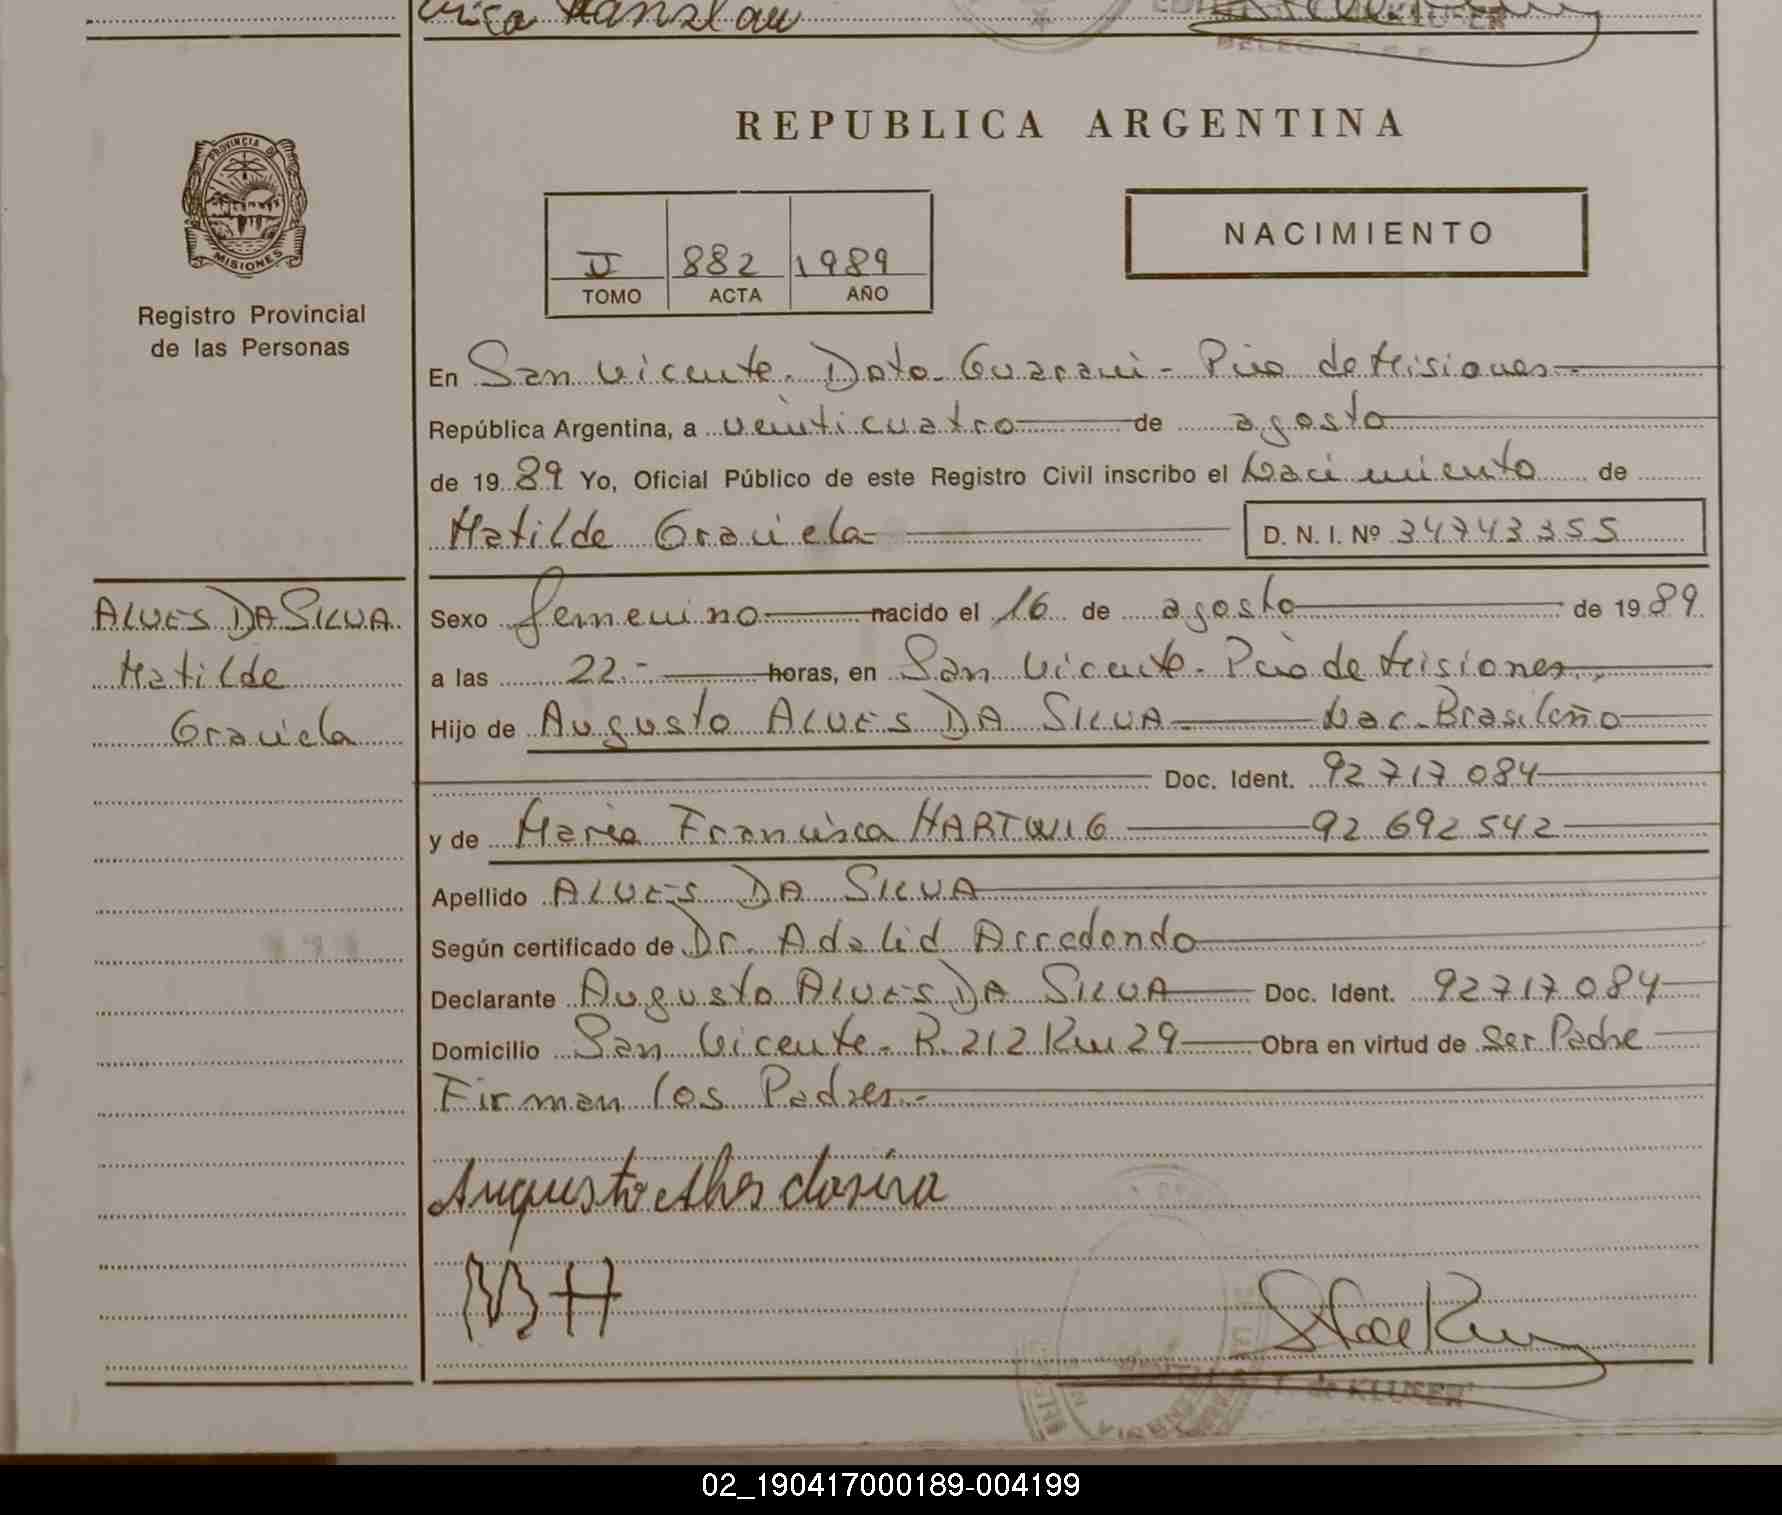 Hanzlau
REPUBLICA ARGENTINA
PROVINCIA DE
MISIONES
Registro Provincial
de las Personas
II 882 1989
TOMO ACTA AÑO
NACIMIENTO
En San Vicente. Dpto. Guarani - Pcia de Misiones
República Argentina, a veinticuatro de agosto
de 19 89 Yo, Oficial Público de este Registro Civil inscribo el Nacimiento de
Matilde Graciela
D. N. I. Nº 34743355
ALVES DA SILVA
Matilde
Graciela
Sexo femenino nacido el 16 de agosto de 19 89
a las 22.- horas, en San Vicente - Pcia de Misiones
Hijo de Augusto ALVES DA SILVA Nac. Brasileño
Doc. Ident. 92 717 084
y de Maria Francisca HARTWIG 92 692 542
Apellido ALVES DA SILVA
Según certificado de Dr. Adalid Arredondo
Declarante Augusto ALVES DA SILVA Doc. Ident. 92 717 084
Domicilio San Vicente - R. 212 Km 29 Obra en virtud de Ser Padre
Firman los Padres.-
Augusto Alves dasirva
M H
de KLUSER
02_190417000189-004199